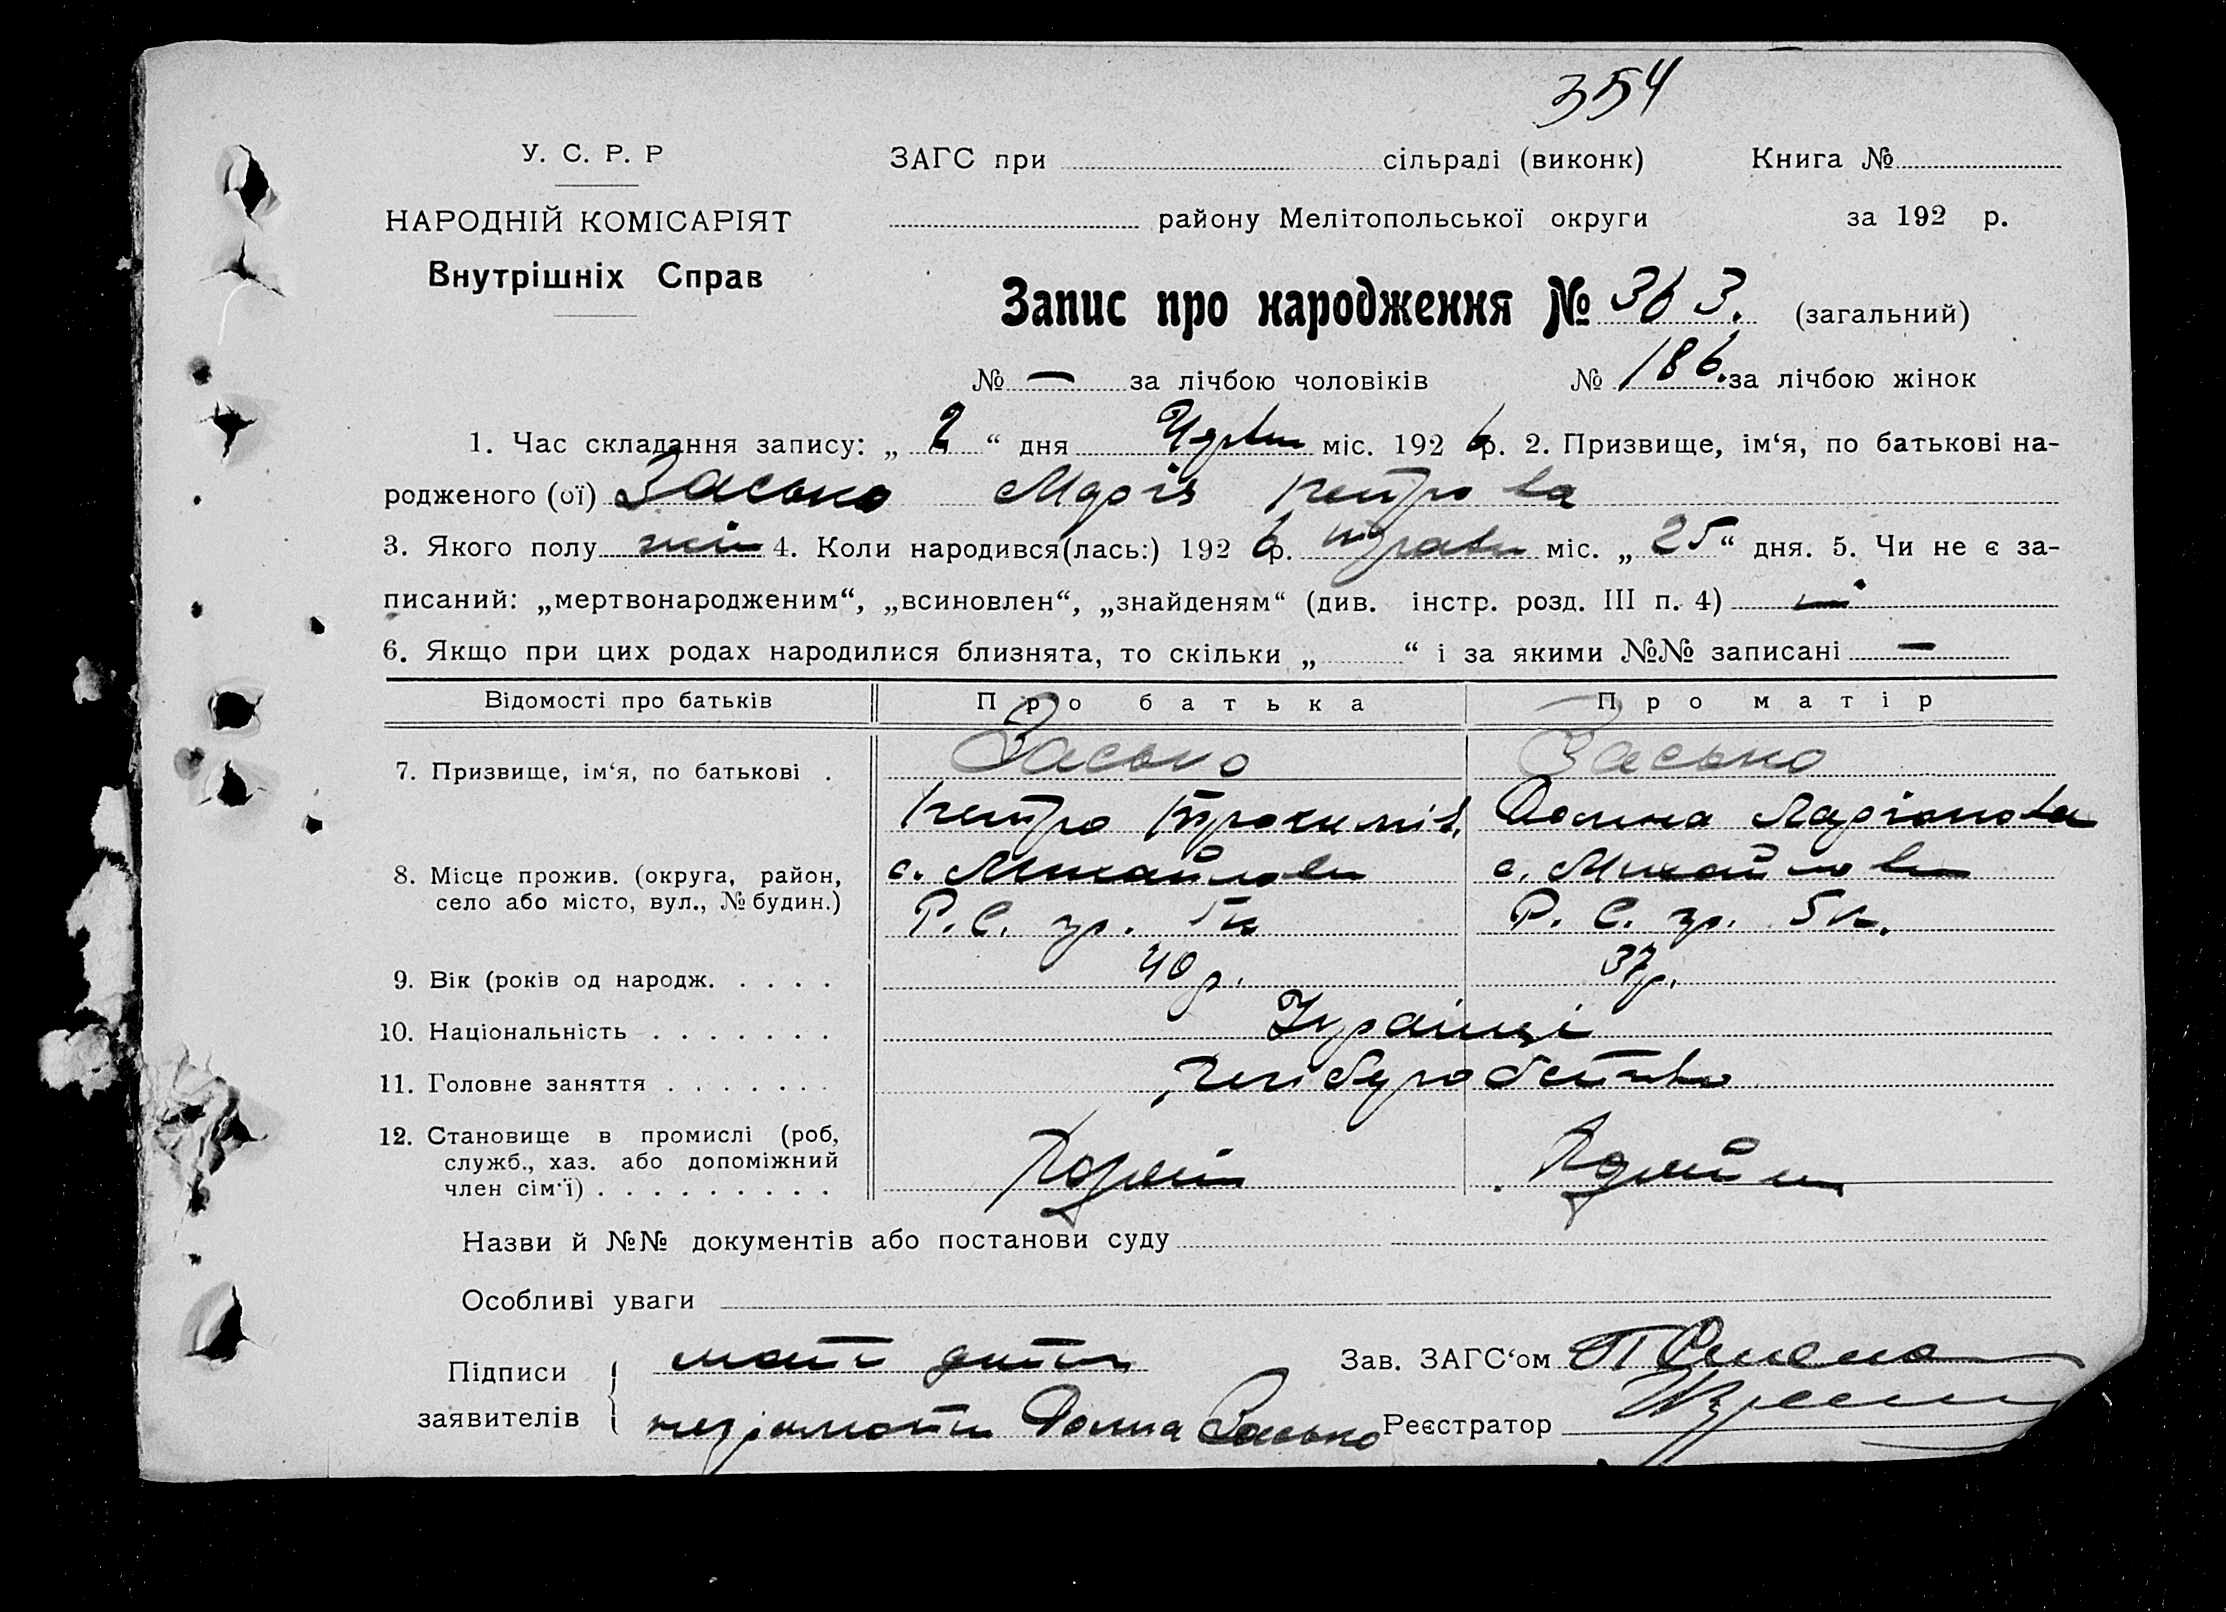 354
У. С. Р. Р
ЗАГС при сільраді (виконк) Книга №
НАРОДНІЙ КОМІСАРІЯТ
району Мелітопольської округи за 192 р.
Внутрішніх Справ
Запис про народження № 363. (загальний)
№ — за лічбою чоловіків № 186. за лічбою жінок
1. Час складання запису: „ 2 “ дня Червн міс. 192 6 р. 2. Призвище, ім‘я, по батькові на-
родженого (ої) Засько Марія Петрова
3. Якого полу жін 4. Коли народився(лась:) 192 6 р. травн міс. „ 25 “ дня. 5. Чи не є за-
писаний: „мертвонародженим“, „всиновлен“, „знайденям“ (див. інстр. розд. III п. 4) ні
6. Якщо при цих родах народилися близнята, то скільки „ “ і за якими №№ записані —
Відомості про батьків Про батька Про матір
7. Призвище, ім‘я, по батькові . Засько Засько
Петро Трохимів. Домна Ларіонова
8. Місце прожив. (округа, район, с. Михайлівк с. Михайлівк
село або місто, вул., № будин.) Р. С. гр. 5к Р. С. гр. 5к.
9. Вік (років од народж. . . . . 40 р. 37 р.
10. Національність . . . . . . . Українці
11. Головне заняття . . . . . . . Хліборобство
12. Становище в промислі (роб,
служб., хаз. або допоміжний
член сім‘ї) . . . . . . . . .
Назви й №№ документів або постанови суду
Особливі уваги
Підписи мати дитини Зав. ЗАГС‘ом
заявителів неграмотн Домна Засько Реєстратор